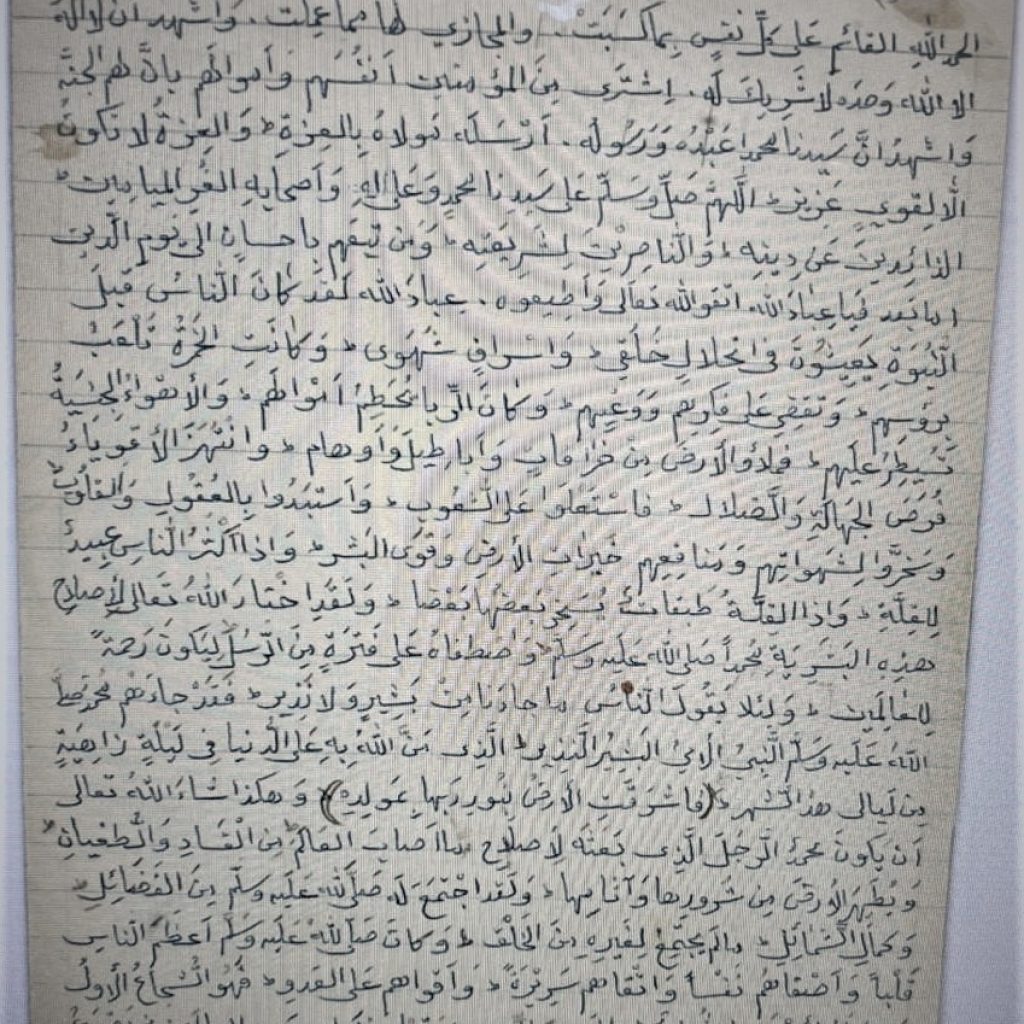 الحمد لله القائم على كل نفس بما كسبت. والمجازي لها مما عملت. واشهد ان لا اله
الا الله وحده لا شريك له. اشترى من المؤمنين انفسهم وأموالهم بانّ لهم الجنة
وَاشهدُ انَّ سَيدنا محمداً عَبْدُه وَرَسُوله. اَرْسَلَه مَولاهُ بِالعِزةِ وَالعِزةُ لا تكونَ
اِلّا لِقويٍ عَزيز اللهمَّ صَلِّ وَسَلِّم عَلى سَيدنا محمدٍ وَعَلى الهِ وَاَصحابِهِ الغُرِّ الميامِين
الذائِدينَ عَن دِينِه وَالناصِرينَ لِشَريعَتِه وَمَن تبعَهم بِاحسانٍ الى يَوم الدين
اما بَعد فَيا عِبادَ الله. اتقوا الله تعالى وَاَطيعوه. عِبادَ الله لَقد كانَ الناسُ قَبلَ
النّبُوَةِ يَعيشونَ في انحلالِ خلقي وَاسرافٍ شَهوى وَكانَتِ الخَمرةُ تَلعَبُ
برؤسهم وَتقضي على فِكرِهم وَوَعيِهم وَكانَ الرِّبا يُحَطِّمُ اَموالَهم وَالأهواءُ الجِنسيَّةُ
تُسَيطِرُ عَلَيهم فملاؤا الأرضَ مِن خرافاتٍ وَأباطيلَ وَأوهام وانتَهزَ الأقوياءُ
فُرَصَ الجهالةِ وَالضلال فاستعلوا عَلى الشعوب وَاستَبَدُوا بِالعُقولِ وَالقلوبِ
وَسَخَّروا لِشهواتِهم وَمنافِعِهم خَيراتِ الأرضِ وَقوى البَشر وَاذا اكْثرُ الناسِ عبيدٌ
لِلقِلةِ وَاذا القِلةُ طَبقاتٌ يُسَخِّر بَعضُها بَعضا وَلَقَد اختارَ اللهُ تَعالى لِإصلاحِ
هذِهِ البَشريةِ محمداً صَلى الله عَلَيه وَسَلم وَاصطفاهُ عَلى فَترَةٍ مِن الرّسُلِ لِيَكونَ رَحمَةً
لِلعالَمين وَلِئلا يَقولَ الناسُ ما جاءَنا مِن بَشيرٍ وَلا نَذير فَقد جاءَهم محمد صلى
اللهُ عَلَيه وَسَلم النَّبيُ الأميُ البَشيرُ النذير الَّذي مَنَّ اللهُ بِهِ عَلى الدُنيا في لَيلةٍ زاهِيَةٍ
مِن لَيالى هذا الشهر (فاشرَقتِ الأرضُ بنورِ رَبها بمَولِدِهِ) وَهكذا شاءَ اللهُ تعالى
اَن يكونَ محمدٌ الرَّجلَ الَّذى بَعَثه لِاصلاحِ ما اصابَ العالمَ مِن الفَسادِ وَالطغيانِ
وَيُطَهِرَ الأرضَ مِن شرورِها وَآثامِها وَلَقد اجتمَعَ لَه صَلى الله عَليه وسلم مِنَ الفَضائِلِ
وَكمالِ الشمائِل مالم يجتَمِع لِغيرِهِ مِنَ الخلق وَكانَ صَلى اللهُ عَلَيه وَسَلم أعظَمَ الناسِ
قَلباً وَاَصفاهُم نَفساً وَاتقاهم سَريرَةً وَاَقواهم عَلى العَدو فَهُو الشجاعُ الأولُ